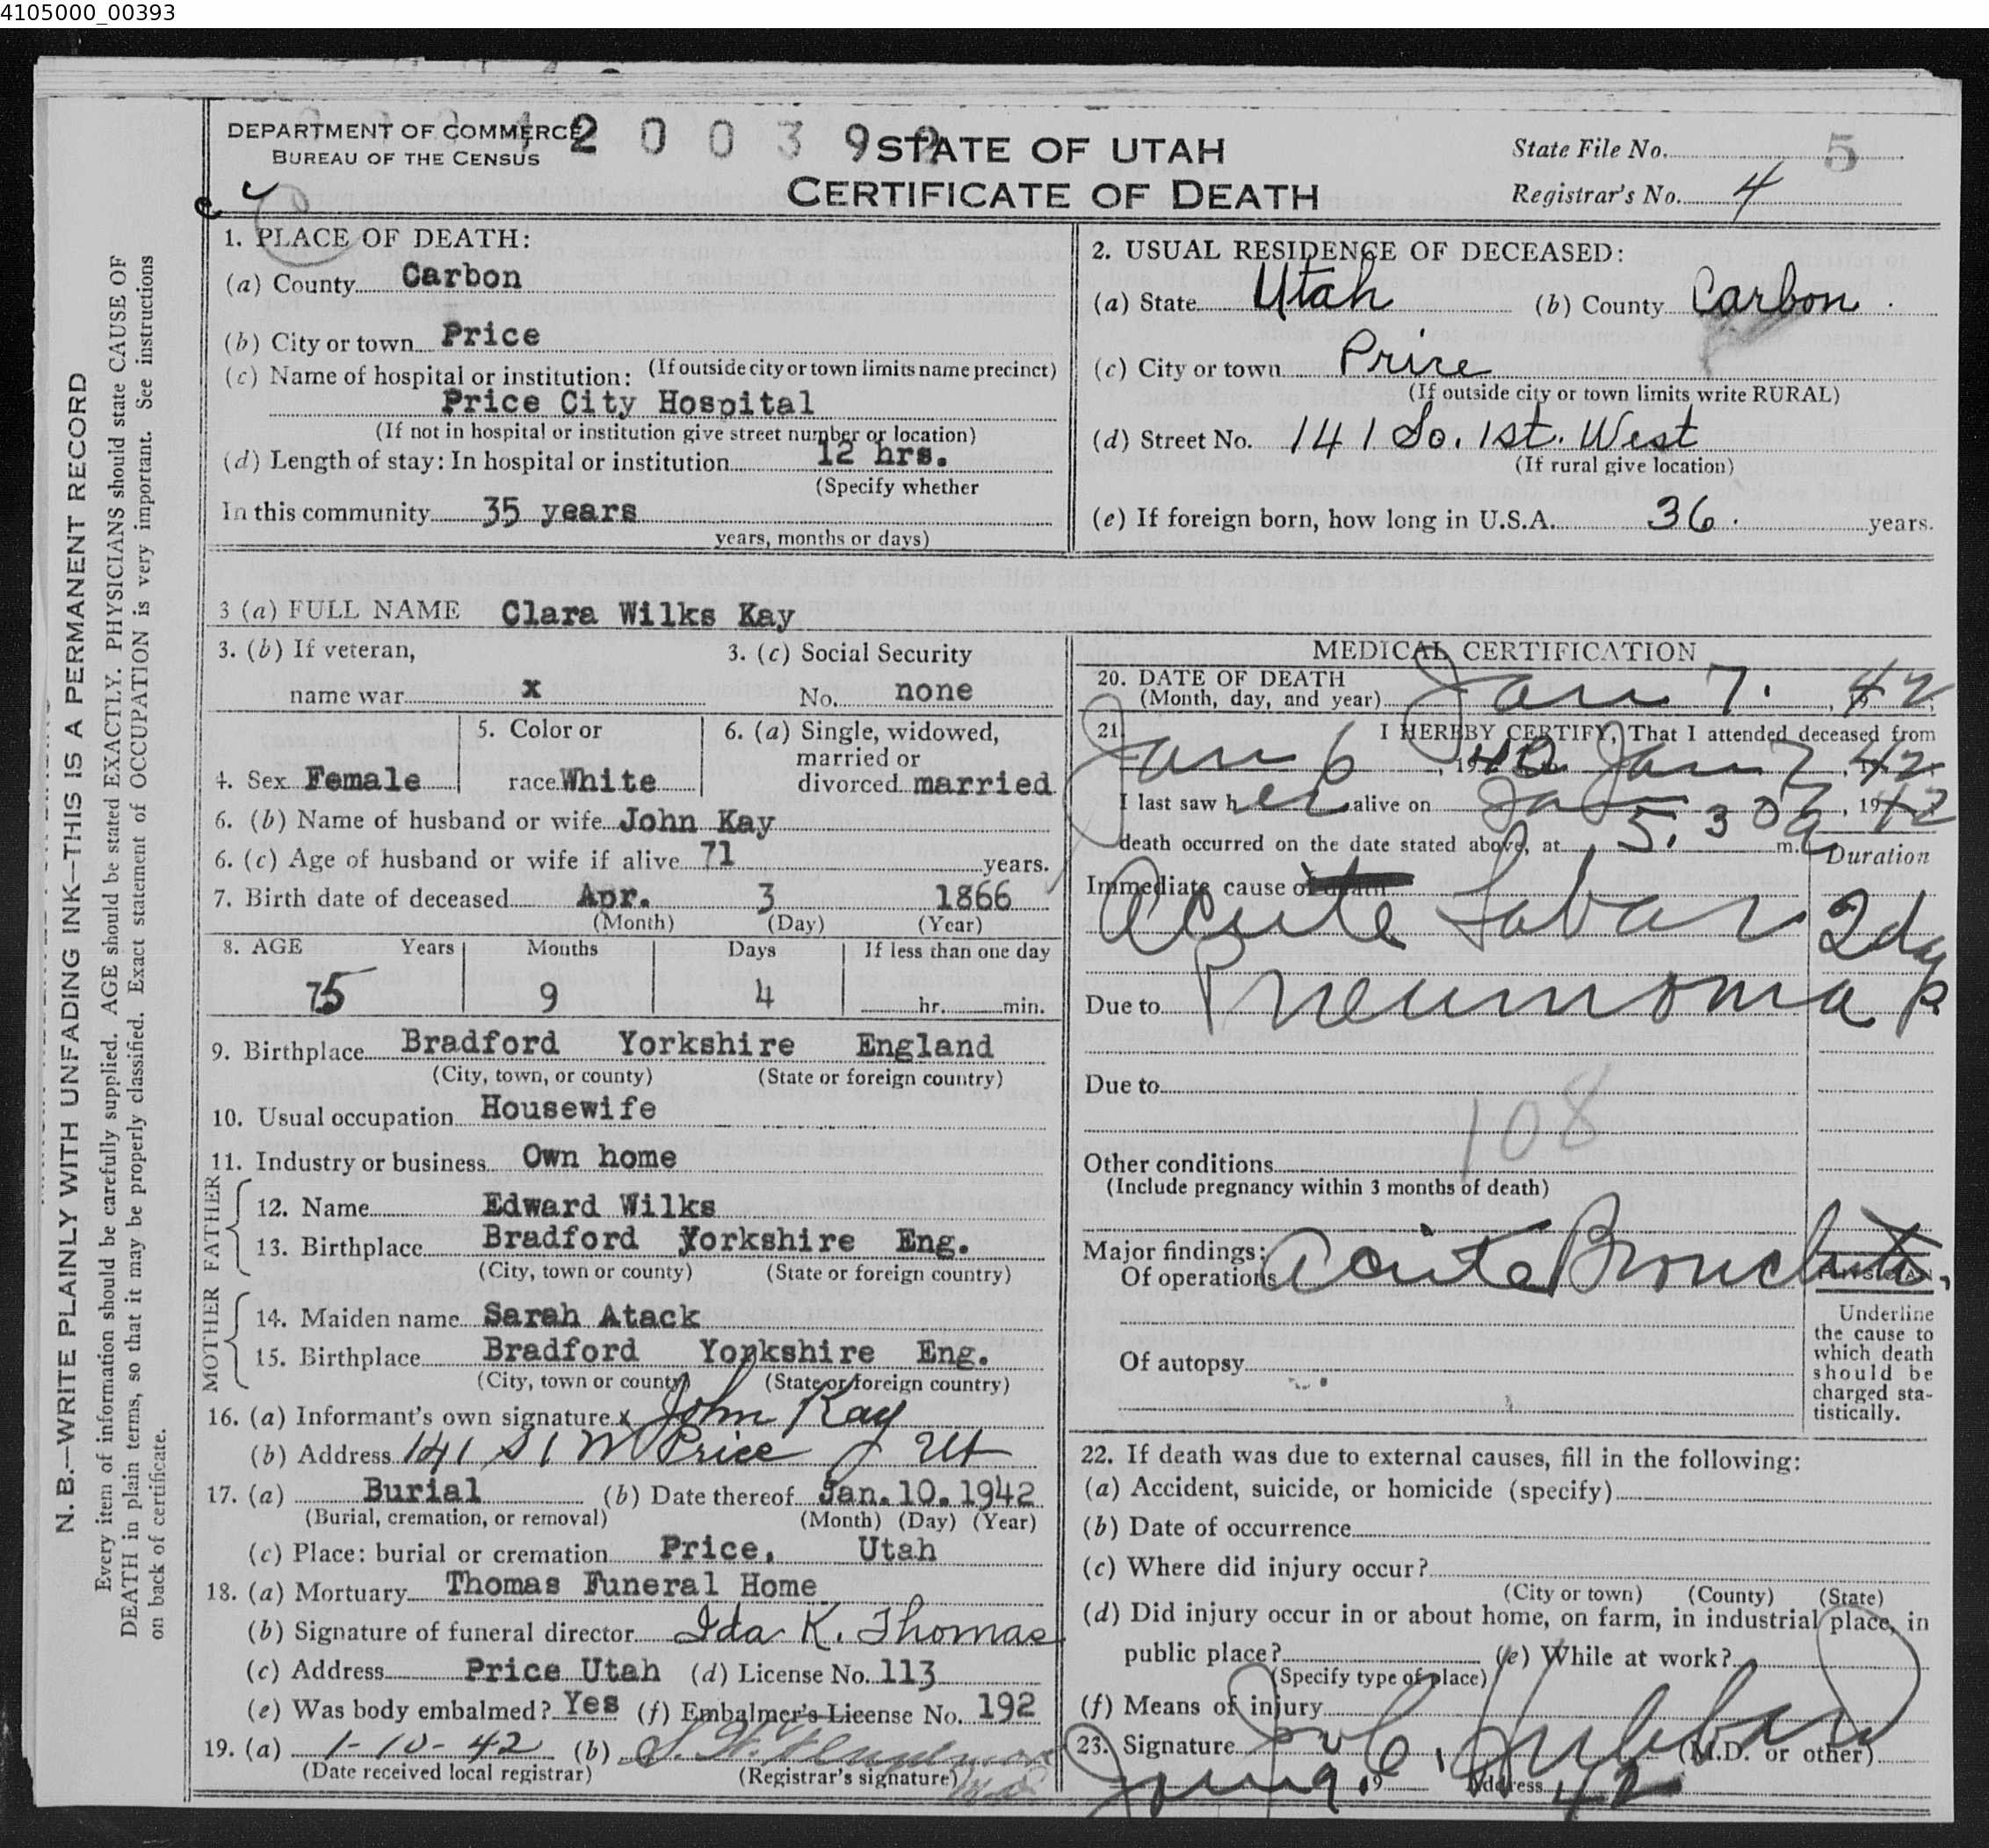 4105000_00393
DEPARTMENT OF COMMERCE
BUREAU OF THE CENSUS
2 0 0 3 9
STATE OF UTAH
CERTIFICATE OF DEATH
State File No. 5
Registrar's No. 4
N. B.—WRITE PLAINLY WITH UNFADING INK—THIS IS A PERMANENT RECORD
Every item of information should be carefully supplied. AGE should be stated EXACTLY. PHYSICIANS should state CAUSE OF
DEATH in plain terms, so that it may be properly classified. Exact statement of OCCUPATION is very important. See instructions
on back of certificate.
1. PLACE OF DEATH:
(a) County Carbon
(b) City or town Price
(If outside city or town limits name precinct)
(c) Name of hospital or institution:
Price City Hospital
(If not in hospital or institution give street number or location)
(d) Length of stay: In hospital or institution 12 hrs.
(Specify whether
In this community 35 years
years, months or days)
2. USUAL RESIDENCE OF DECEASED:
(a) State Utah (b) County Carbon
(c) City or town Price
(If outside city or town limits write RURAL)
(d) Street No. 141 So. 1st. West
(If rural give location)
(e) If foreign born, how long in U.S.A. 36. years.
3 (a) FULL NAME Clara Wilks Kay
3. (b) If veteran,
name war x
3. (c) Social Security
No. none
4. Sex Female
5. Color or
race White
6. (a) Single, widowed,
married or
divorced married
6. (b) Name of husband or wife John Kay
6. (c) Age of husband or wife if alive 71 years.
7. Birth date of deceased Apr. 3 1866
(Month) (Day) (Year)
8. AGE Years Months Days If less than one day
75 9 4 hr. min.
9. Birthplace Bradford Yorkshire England
(City, town, or county) (State or foreign country)
10. Usual occupation Housewife
11. Industry or business Own home
FATHER
12. Name Edward Wilks
13. Birthplace Bradford Yorkshire Eng.
(City, town or county) (State or foreign country)
MOTHER
14. Maiden name Sarah Atack
15. Birthplace Bradford Yorkshire Eng.
(City, town or county) (State or foreign country)
16. (a) Informant's own signature x John Kay
(b) Address 141 S 1 W Price Ut
17. (a) Burial (b) Date thereof Jan. 10. 1942
(Burial, cremation, or removal) (Month) (Day) (Year)
(c) Place: burial or cremation Price, Utah
18. (a) Mortuary Thomas Funeral Home
(b) Signature of funeral director Ida K. Thomas
(c) Address Price Utah (d) License No. 113
(e) Was body embalmed? Yes (f) Embalmer's License No. 192
19. (a) 1-10-42 (b)
(Date received local registrar) (Registrar's signature)
MEDICAL CERTIFICATION
20. DATE OF DEATH
(Month, day, and year) Jan 7. 42
21. I HEREBY CERTIFY, That I attended deceased from
Jan 6, 1942 Jan 7, 42
I last saw her alive on Jan 7, 1942
death occurred on the date stated above, at 5.30 a m.
Duration
Immediate cause of death
Acute Lobar 2 days
Due to Pneumonia
Due to
108
Other conditions
(Include pregnancy within 3 months of death)
Major findings:
Of operations Acute Bronchitis,
PHYSICIAN
Underline
the cause to
which death
should be
charged sta-
tistically.
Of autopsy
22. If death was due to external causes, fill in the following:
(a) Accident, suicide, or homicide (specify)
(b) Date of occurrence
(c) Where did injury occur?
(City or town) (County) (State)
(d) Did injury occur in or about home, on farm, in industrial place, in
public place? (e) While at work?
(Specify type of place)
(f) Means of injury
23. Signature C. Hubbard (M.D. or other)
Jany 9. 19 Address 42